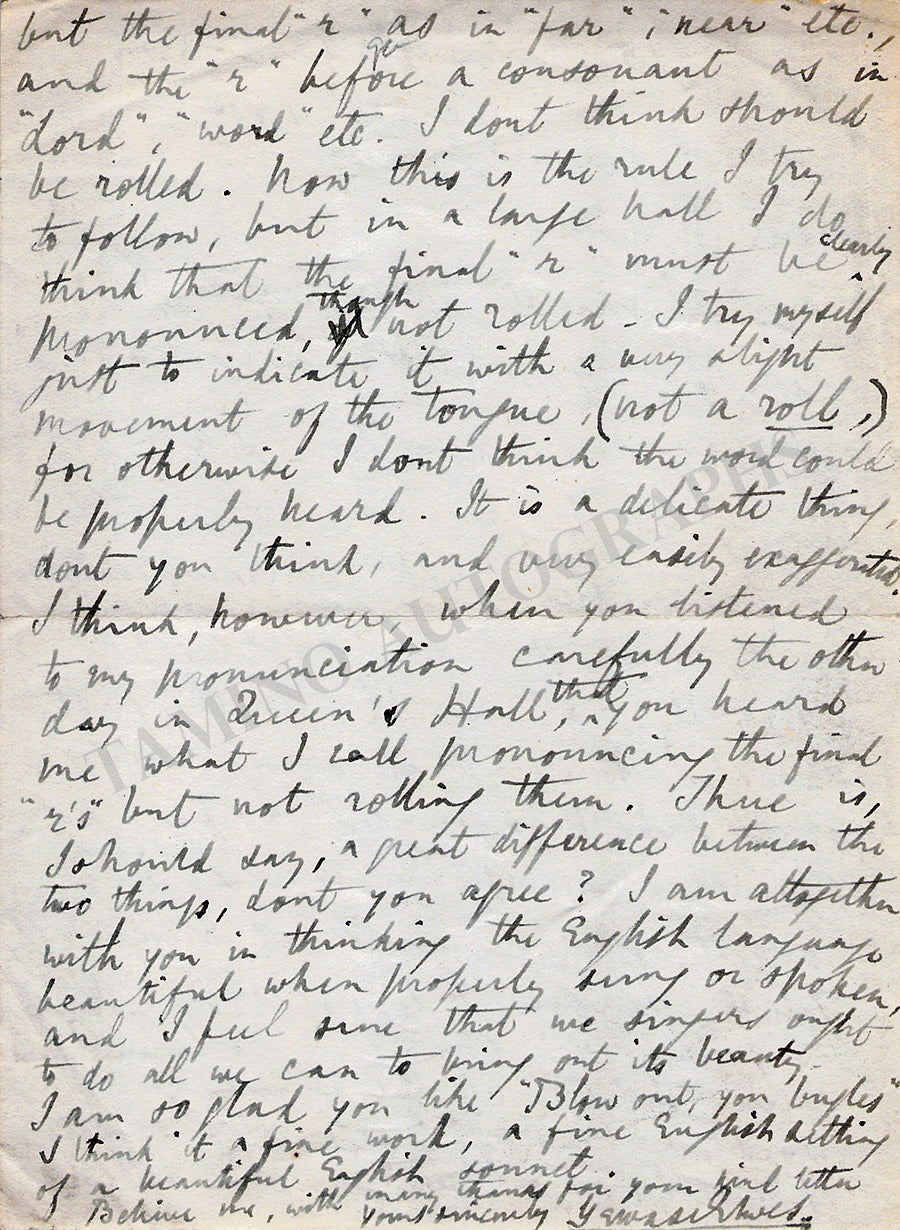 but the final "r" as in "far", "near" etc.,
and the "r" before a consonant as in
"Lord", "word" etc. I dont think should
be rolled. Now this is the rule I try
to follow, but in a large hall I do
think that the final "r" must be clearly
pronounced, though not rolled - I try myself
just to indicate it with a very slight
movement of the tongue, (not a roll,)
for otherwise I dont think the word could
be properly heard. It is a delicate thing,
dont you think, and very easily exaggerated.
I think, however, when you listened
to my pronunciation carefully the other
day in Queen's Hall, that you heard
me what I call pronouncing the final
"r's" but not rolling them. There is,
I should say, a great difference between the
two things, dont you agree? I am altogether
with you in thinking the English language
beautiful when properly sung or spoken,
and I feel sure that we singers ought
to do all we can to bring out its beauty.
I am so glad you like "Blow out, you bugles"
I think it a fine work, a fine English setting
of a beautiful English sonnet.
Believe me, with many thanks for your kind letter
Yours sincerely Gervase Elwes.
TAMINO AUTOGRAPHS